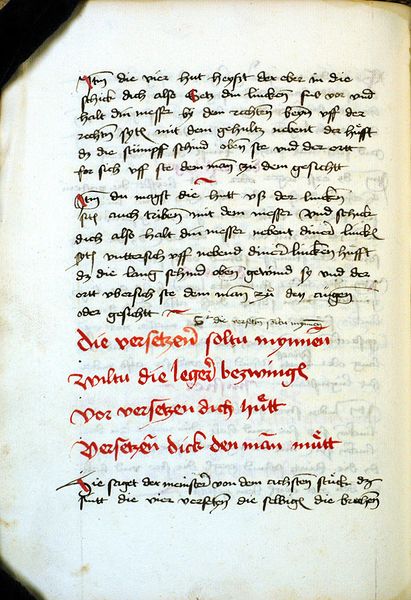 Itm die vier hut heyst der eber in die
schick dich also Setz din lincken fuß vor vnd
halt din messer by dem rechten beyn vff der
rechten sytē mit dem gehultz nebent der hüfft
dz die stumpf schnid oben ste vnd der ortt
for sich vff ste dem man zu dem gesichtt
Itm du magst die hutt vß der lincken
sitē auch triben mit dem messer vnd schick
dich also halt din messer nebent diner linckē
sytē vnttersich vff nebend diner linckē hüfft
dz die lang schnid oben gewind sy vnd der
ortt vbersich ste dem man zü den augen
oder gesichtt
die versetzen soltu mynnen
die versetzen soltu mynnen
wiltu die leger bezwingē
vor versetzen dich hütt
Versetzen dick den man mütt
Hie saget der meinster von dem achsten stück dz
sintt die vier versetzen die selbigē die brechen